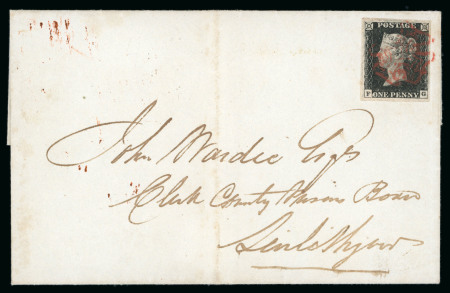 POSTAGE
ONE PENNY
John Wardie Esqr
Clerk County Prisons Board
Linlithgow